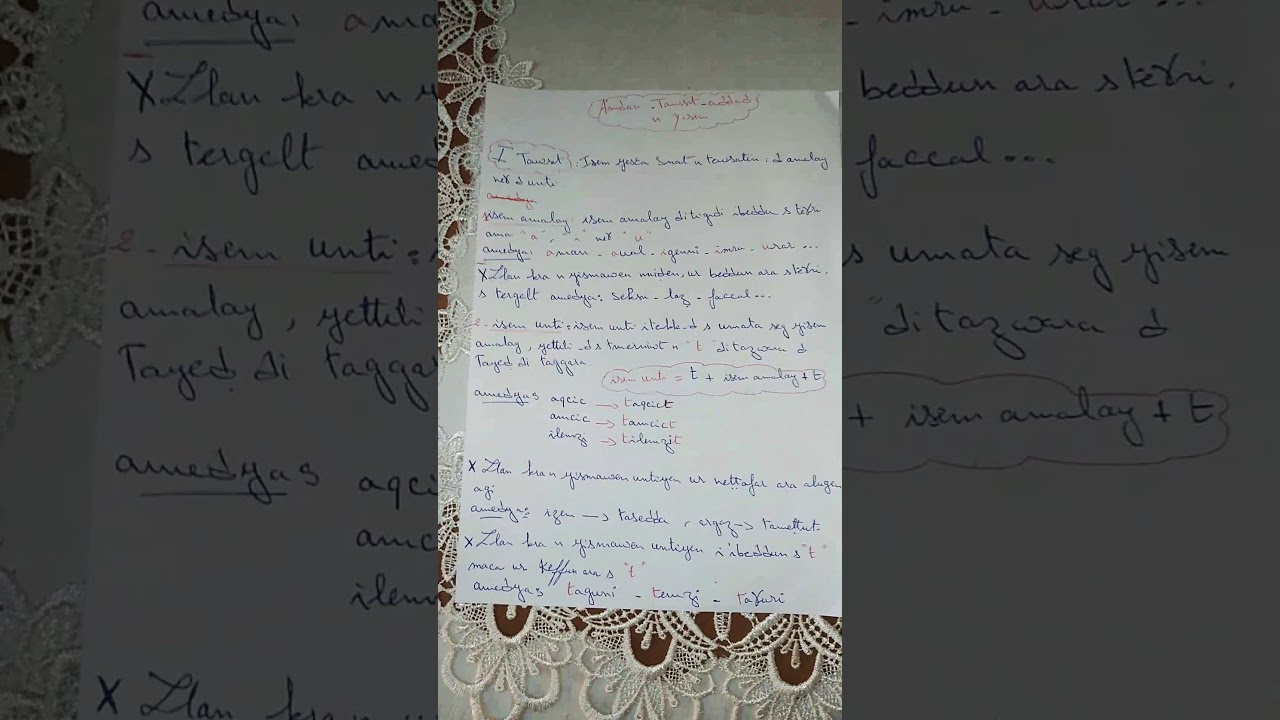 Amdan - Tawsit - addad
n yisem
I Tawsit : Isem yesɛa Snat n tewsatin : d amalay
neɣ d unti
amedy
yisem amalay : isem amalay di tegudi ibeddu s teɣri
ama "a", "i" neɣ "u"
amedya: aman - awal - igenni - imru - urar ...
X Llan kra n yismawen nniḍen, ur beddun ara s teɣri,
s tergelt amedya: Seksu - laẓ - faccal ...
2 - isem unti = isem unti itekk-d s umata seg yisem
amalay, yettili-d s tmerniwt n "t" di tazwara d
Tayeḍ di taggara.
isem unti = t + isem amalay + t
amedyas aqcic → taqcict
amcic → tamcict
ilemẓi → tilemẓit
X Llan kra n yismawen untiyen ur neṭṭafar ara alugen
agi
amedyas izem → tasedda, argaz → tameṭṭut
X Llan kra n yismawen untiyen i ibeddun s "t"
maca ur keffun ara s "t"
amedyas taguni - temẓi - taɣuri